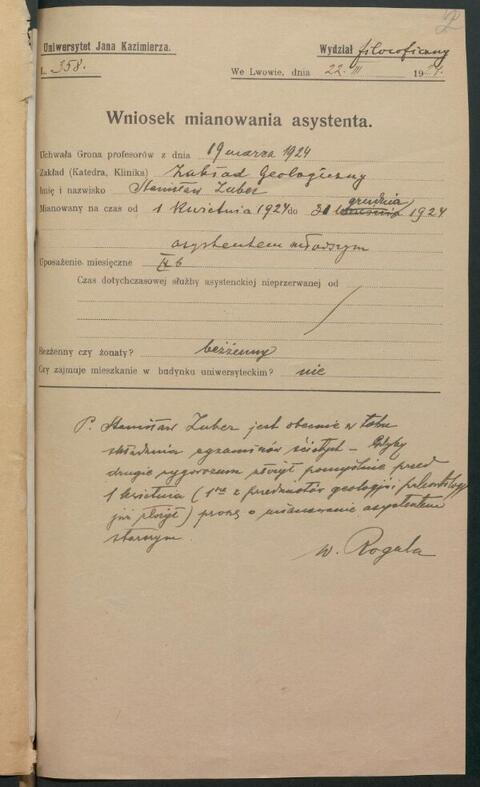 2
Uniwersytet Jana Kazimierza.
Wydział filozoficzny
L. 358.
We Lwowie, dnia 22. III 1924.
Wniosek mianowania asystenta.
Uchwała Grona profesorów z dnia 19 marca 1924
Zakład (Katedra, Klinika) Zakład Geologiczny
Imię i nazwisko Stanisław Zuber
Mianowany na czas od 1 kwietnia 1924 do 31 grudnia 1924
asystentem młodszym
Uposażenie miesięczne
Czas dotychczasowej służby asystenckiej nieprzerwanej od
Bezżenny czy żonaty? bezżenny
Czy zajmuje mieszkanie w budynku uniwersyteckim? nie
P. Stanisław Zuber jest obecnie w toku
składania egzaminów ścisłych – Gdyby
drugie rygorozum złożył pomyślnie przed
1 kwietnia (1sze z przedmiotów geologji i paleontologji
już złożył) proszę o mianowanie asystentem
starszym.
W. Rogala